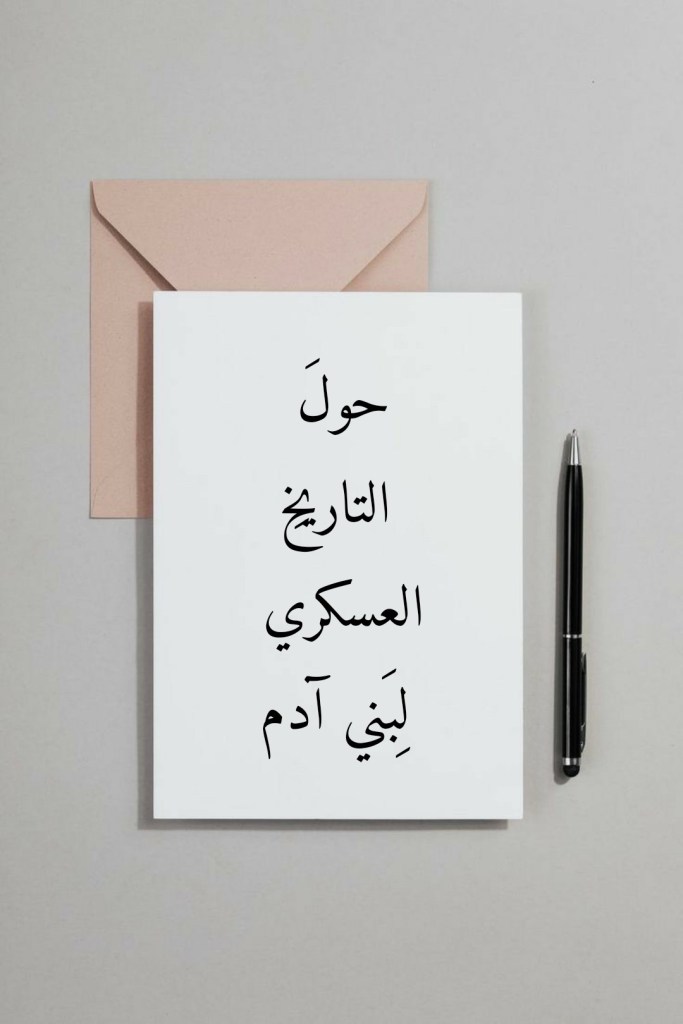 حولَ
التاريخ
العسكري
لِبَني آدم